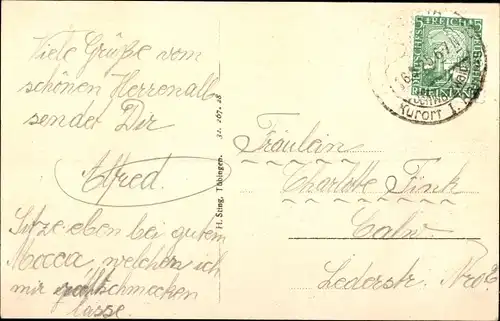 Viele Grüße vom
schönen Herrenalb
sendet Dir
Alfred.
Sitze eben bei gutem
Mocca, welchen ich
mir schmecken
lasse.
H. Sting, Tübingen. 32. 267. 28
DEUTSCHES REICH
5 5
Kurort I.
Fräulein
Charlotte Fink
Calw
Lederstr. Nro